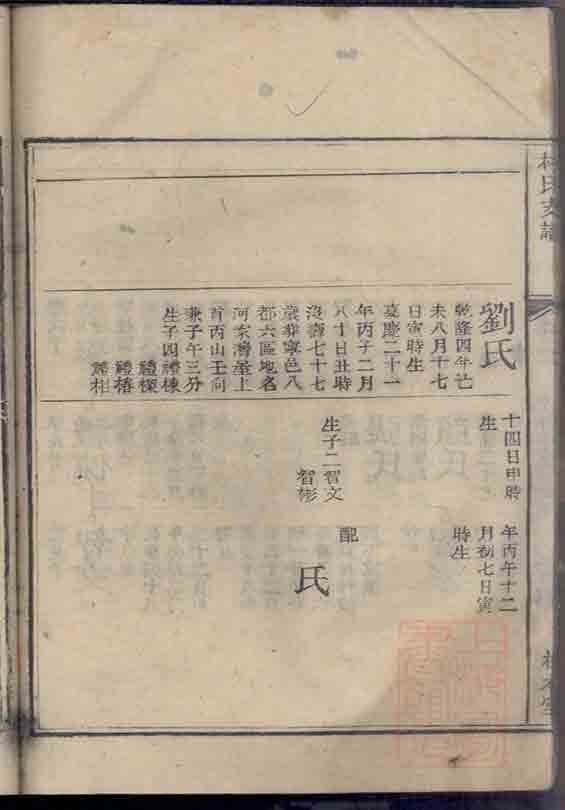 氏支譜
劉氏
乾隆四年己
未八月十七
日寅時生
嘉慶二十一
年丙子二月
八十日丑時
沒壽七十七
歲葬寧邑八
都六區地名
河家灣屋上
首丙山壬向
兼子午三分
生子四禮棟
禮
禮椿
禮相
十四日申時
生
生子二智文
智彬
年丙午十二
月初七日寅
時生
配 氏